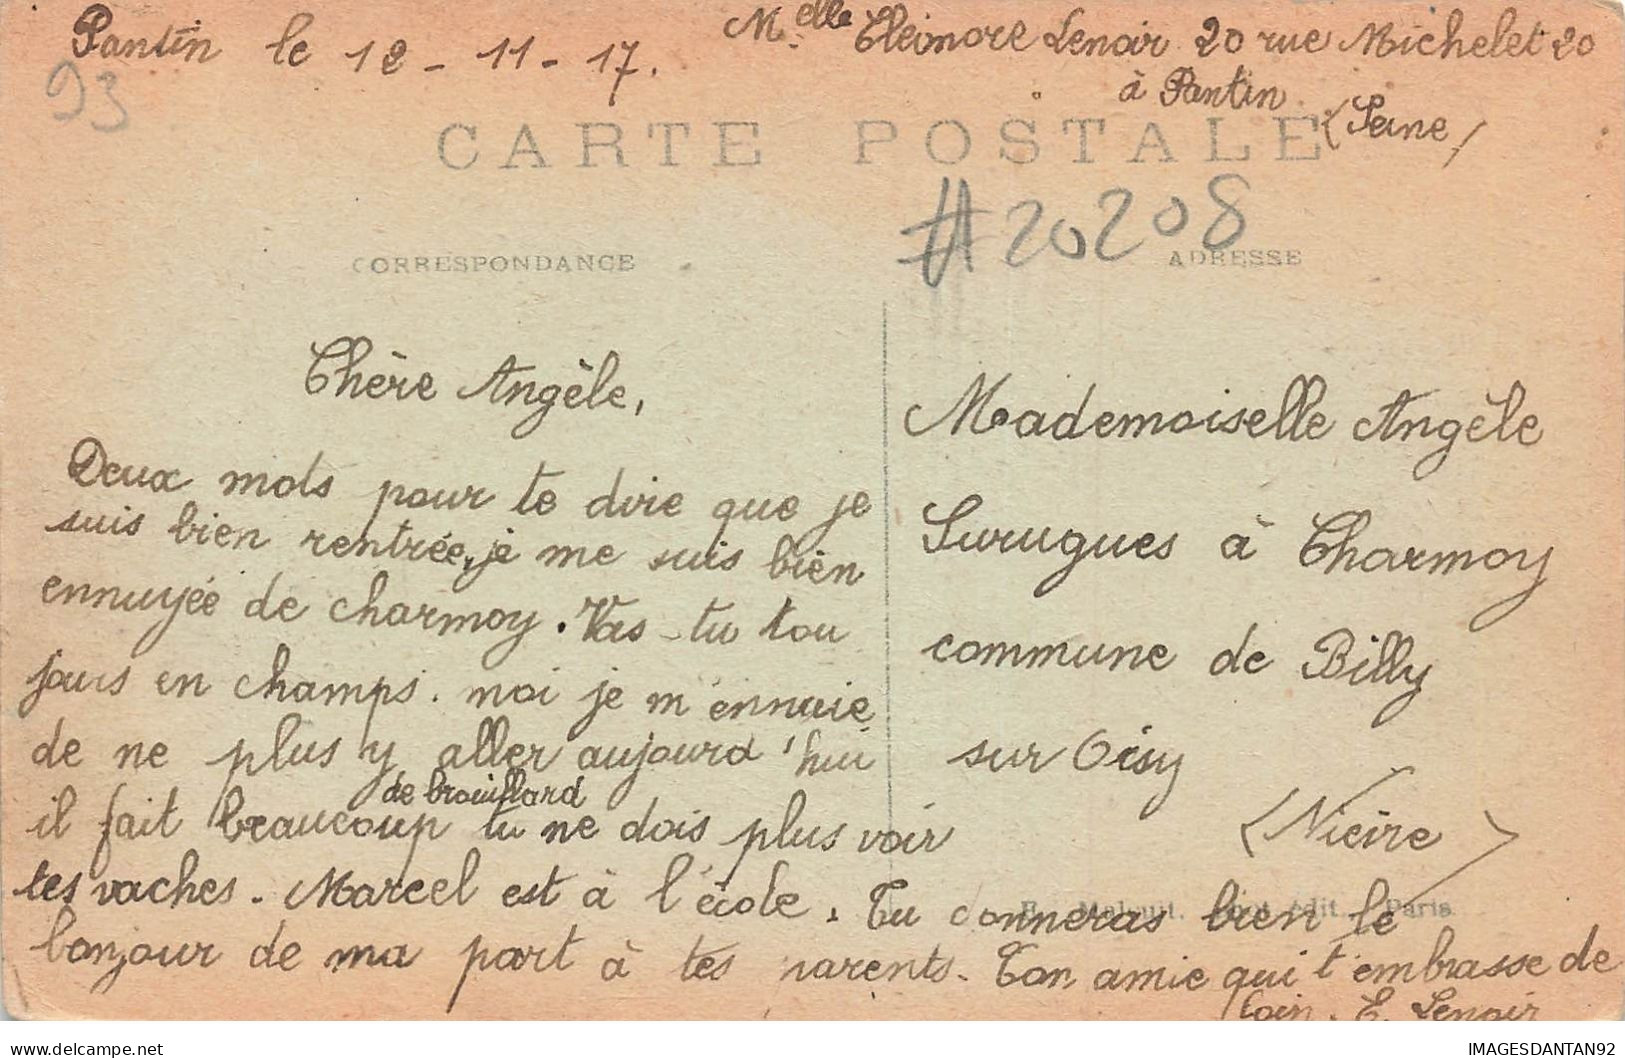 Pantin le 12-11-17.
Melle Eléonore Lenoir 20 rue Michelet 20
à Pantin
(Seine)
93
CARTE POSTALE
#20208
CORRESPONDANCE
ADRESSE
Chère Angèle,
Deux mots pour te dire que je
suis bien rentrée, je me suis bien
ennuyée de charmoy. Vas-tu tou
jours en champs. moi je m'ennuie
de ne plus y aller aujourd'hui
de brouillard
il fait beaucoup tu ne dois plus voir
tes vaches. Marcel est à l'école. Tu donneras bien le
bonjour de ma part à tes parents. Ton amie qui t'embrasse de
loin. E. Lenoir
Mademoiselle Angèle
Surugues à Charmoy
commune de Billy
sur Oisy
(Nièvre)
E. Malcuit, phot. édit. Paris
delcampe.net
IMAGESDANTAN92